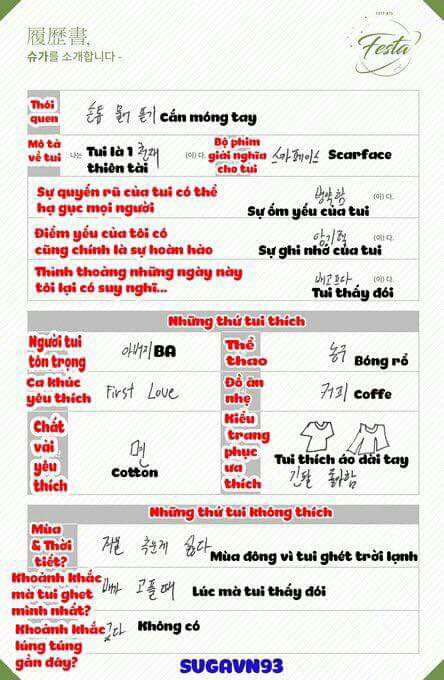 履歷書,
슈가를 소개합니다 -
Festa
Thói quen
손톱 물어 뜯기 Cắn móng tay
Mô tả về tui
나는 Tui là 1 천재 thiên tài (이)다.
Bộ phim giải nghĩa cho tui
스카페이스 Scarface
Sự quyến rũ của tui có thể hạ gục mọi người
병약함 (이)다.
Sự ốm yếu của tui
Điểm yếu của tôi có cũng chính là sự hoàn hảo
암기력 (이)다.
Sự ghi nhớ của tui
Thỉnh thoảng những ngày này tôi lại có suy nghĩ...
배고프다 (이)다.
Tui thấy đói
Những thứ tui thích
Người tui tôn trọng
아버지 BA
Thể thao
농구 Bóng rổ
Ca khúc yêu thích
First Love
Đồ ăn nhẹ
커피 Coffe
Chất vải yêu thích
면
Cotton
Kiểu trang phục ưa thích
Tui thích áo dài tay
긴팔 좋아함
Những thứ tui không thích
Mùa & Thời tiết?
겨울 추운게 싫다 Mùa đông vì tui ghét trời lạnh
Khoảnh khắc mà tui ghet mình nhất?
배 고플때 Lúc mà tui thấy đói
Khoảnh khắc lúng túng gần đây?
없다 Không có
SUGAVN93